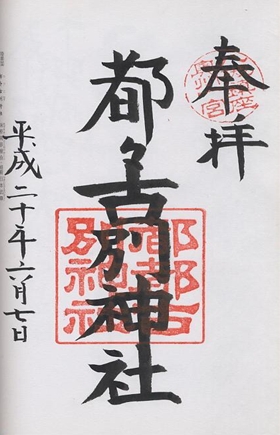 奉拝
都々古別神社
都都古
別神社
平成二十年六月七日